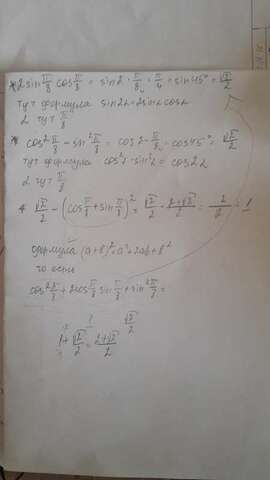 * 2 sin π/8 cos π/8 = sin 2 · π/8 = π/4 = sin 45° = √2/2
тут формула sin2α = 2sinα cosα
α тут π/8
* cos² π/8 − sin² π/8 = cos 2 · π/8 = cos 45° = √2/2
тут формула cos²α − sin²α = cos2α
α тут π/8
* √2/2 − (cos π/8 + sin π/8)² = √2/2 − (2+√2)/2 = − 2/2 = − 1
формула (a+b)² = a² + 2ab + b²
то есть
cos² π/8 + 2cos π/8 sin π/8 + sin² π/8 =
√2/2
1 + √2/2 = (2+√2)/2